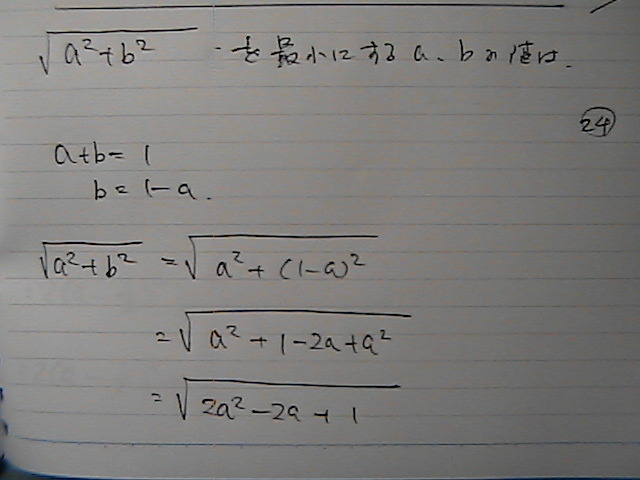 √a²+b² を最小にする a、bの値は.
24
a+b= 1
b= 1-a.
√a²+b² =√a²+(1-a)²
=√a²+1-2a+a²
=√2a²-2a+1